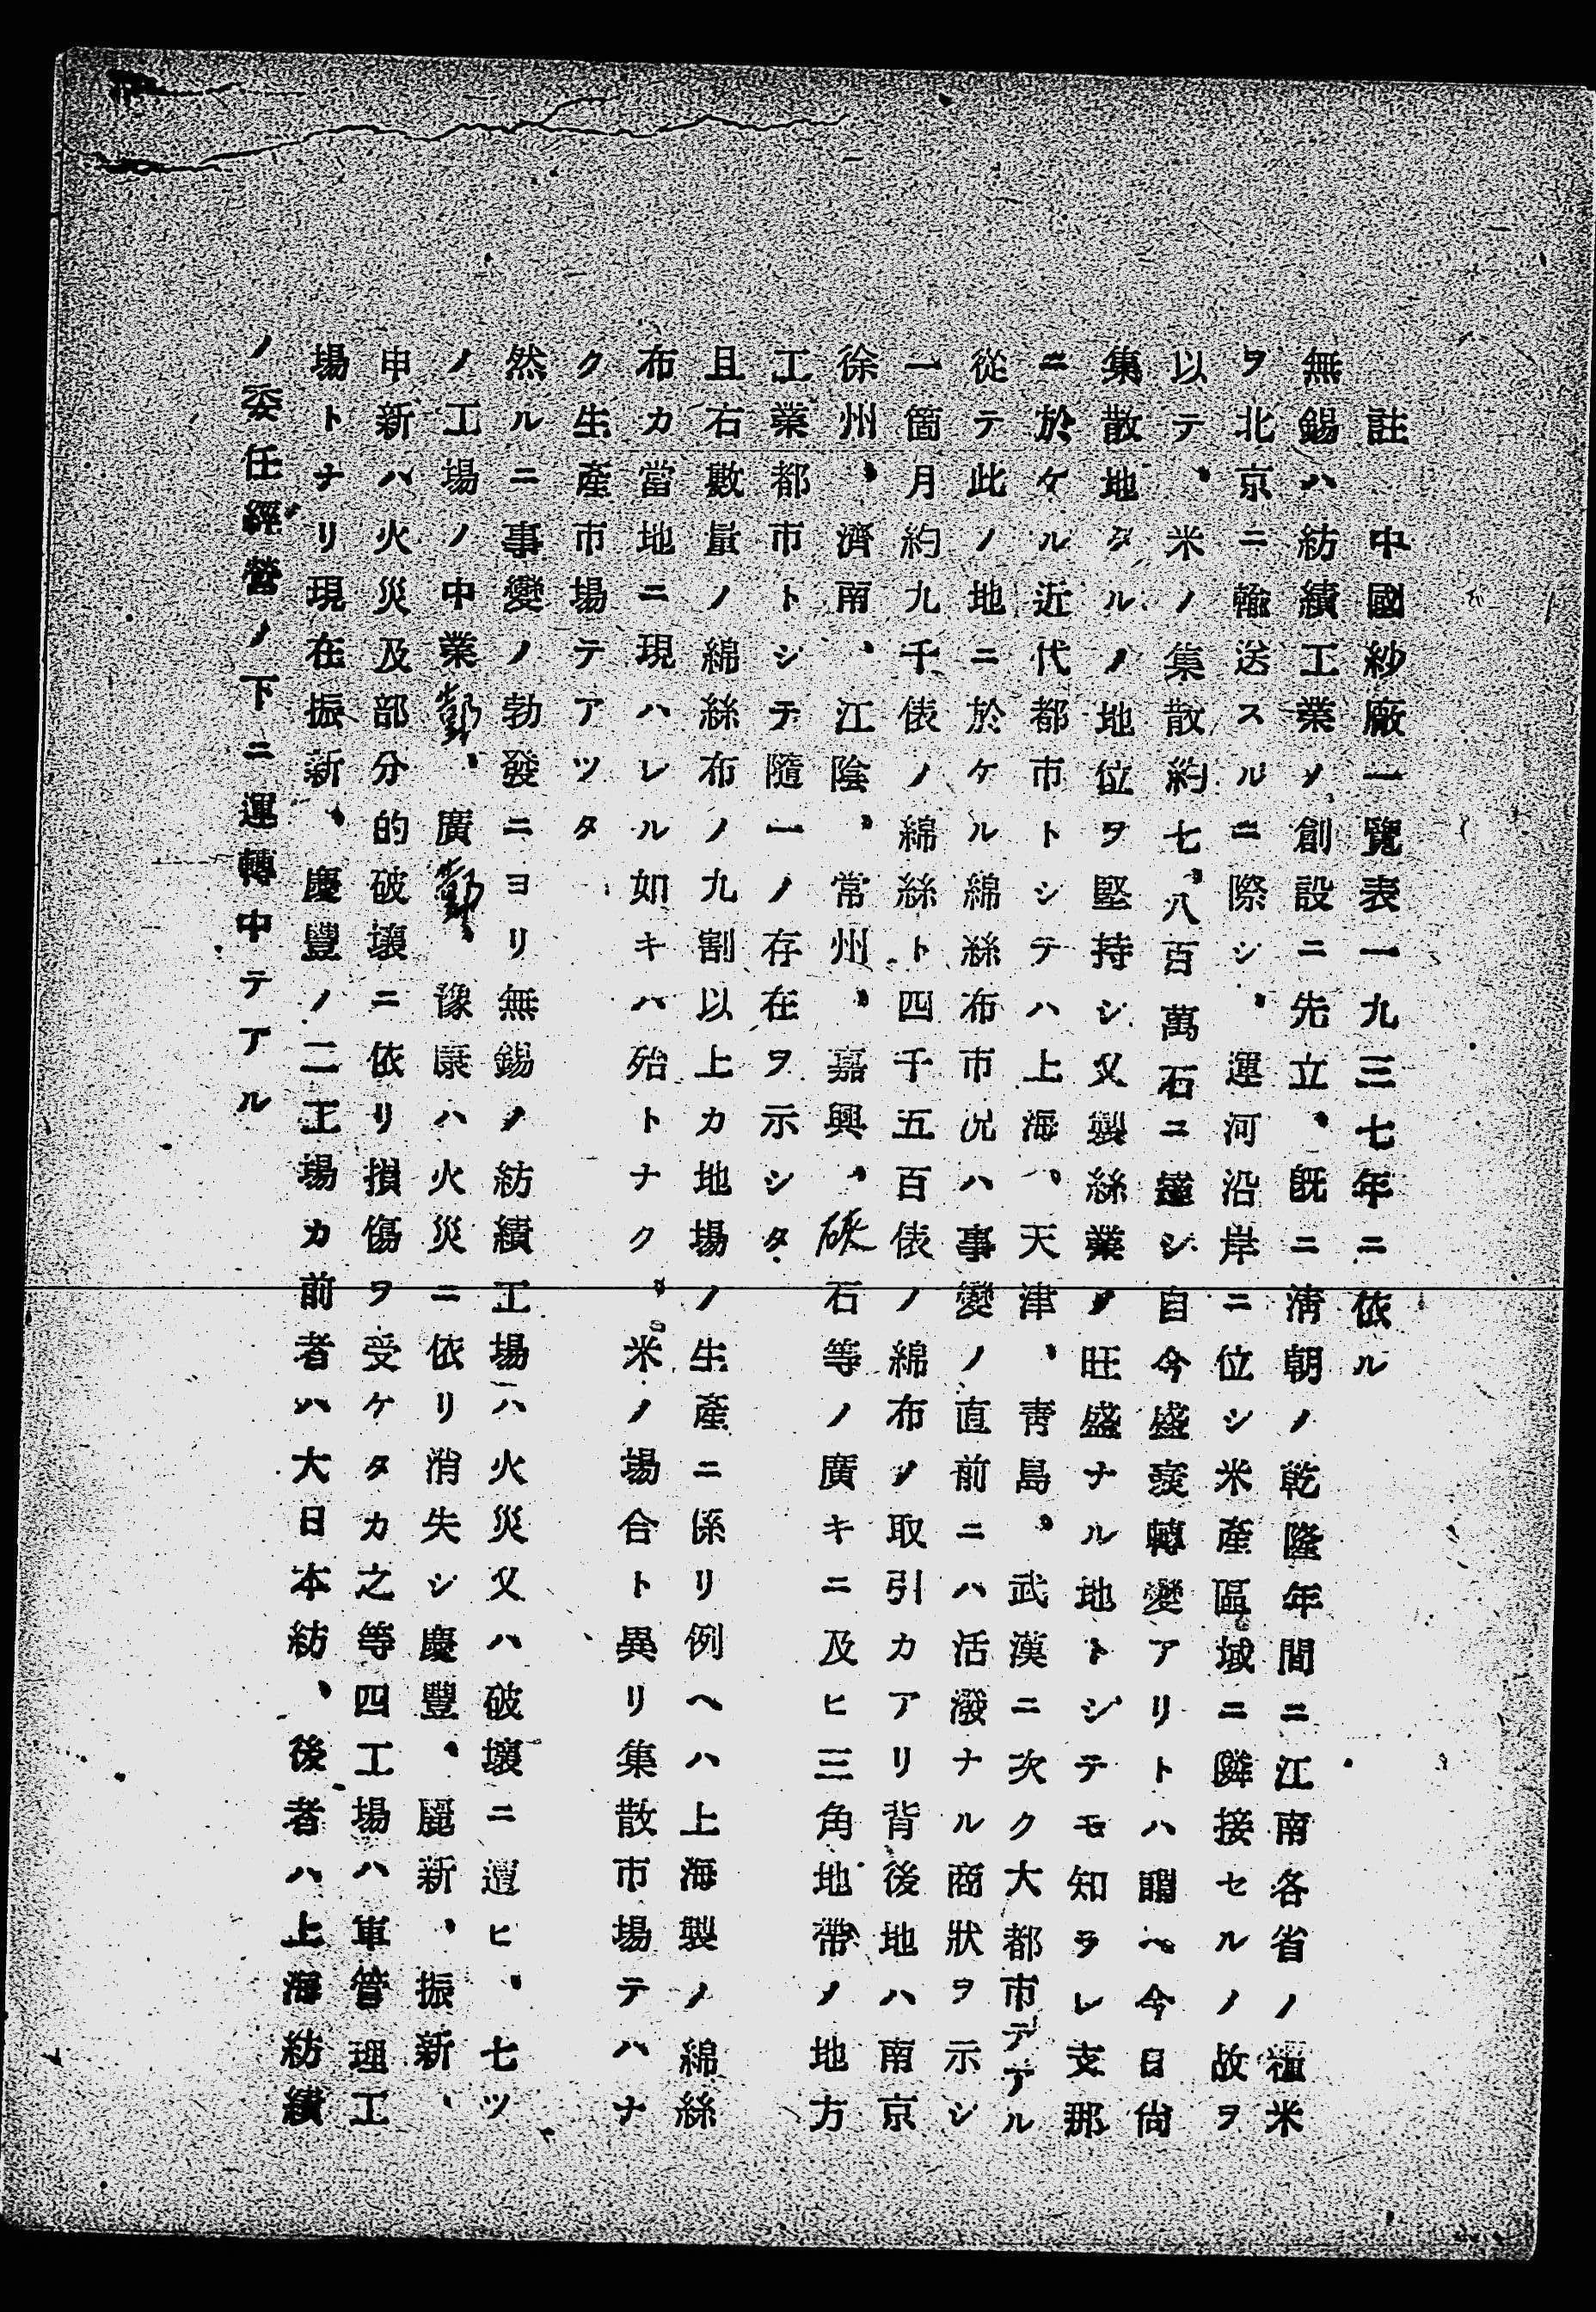 註　中國紗廠一覽表一九三七年ニ依ル
無錫ハ紡績工業ノ創設ニ先立、既ニ淸朝ノ乾隆年間ニ江南各省ノ糧米
ヲ北京ニ輸送スルニ際シ、運河沿岸ニ位シ米產區域ニ隣接セルノ故ヲ
以テ、米ノ集散約七、八百萬石ニ達シ自今盛衰轉變アリトハ謂ヘ今日尙
集散地タルノ地位ヲ堅持シ又製絲業ノ旺盛ナル地トシテモ知ラレ支那
ニ於ケル近代都市トシテハ上海、天津、靑島、武漢ニ次ク大都市デアル
從テ此ノ地ニ於ケル綿絲布市況ハ事變ノ直前ニハ活潑ナル商狀ヲ示シ
一箇月約九千俵ノ綿絲ト四千五百俵ノ綿布ノ取引カアリ背後地ハ南京
徐州、濟南、江陰、常州、嘉興、硤石等ノ廣キニ及ヒ三角地帶ノ地方
工業都市トシテ隨一ノ存在ヲ示シタ
且右數量ノ綿絲布ノ九割以上カ地場ノ生產ニ係リ例ヘハ上海製ノ綿絲
布カ當地ニ現ハレル如キハ殆トナク、米ノ場合ト異リ集散市場テハナ
ク生產市場テアツタ
然ルニ事變ノ勃發ニヨリ無錫ノ紡績工場ハ火災又ハ破壞ニ遭ヒ、七ツ
ノ工場ノ中業勤、廣勤、豫康ハ火災ニ依リ消失シ慶豐、麗新、振新、
申新ハ火災及部分的破壞ニ依リ損傷ヲ受ケタカ之等四工場ハ軍管理工
場トナリ現在振新、慶豐ノ二工場カ前者ハ大日本紡、後者ハ上海紡績
ノ委任經營ノ下ニ運轉中テアル